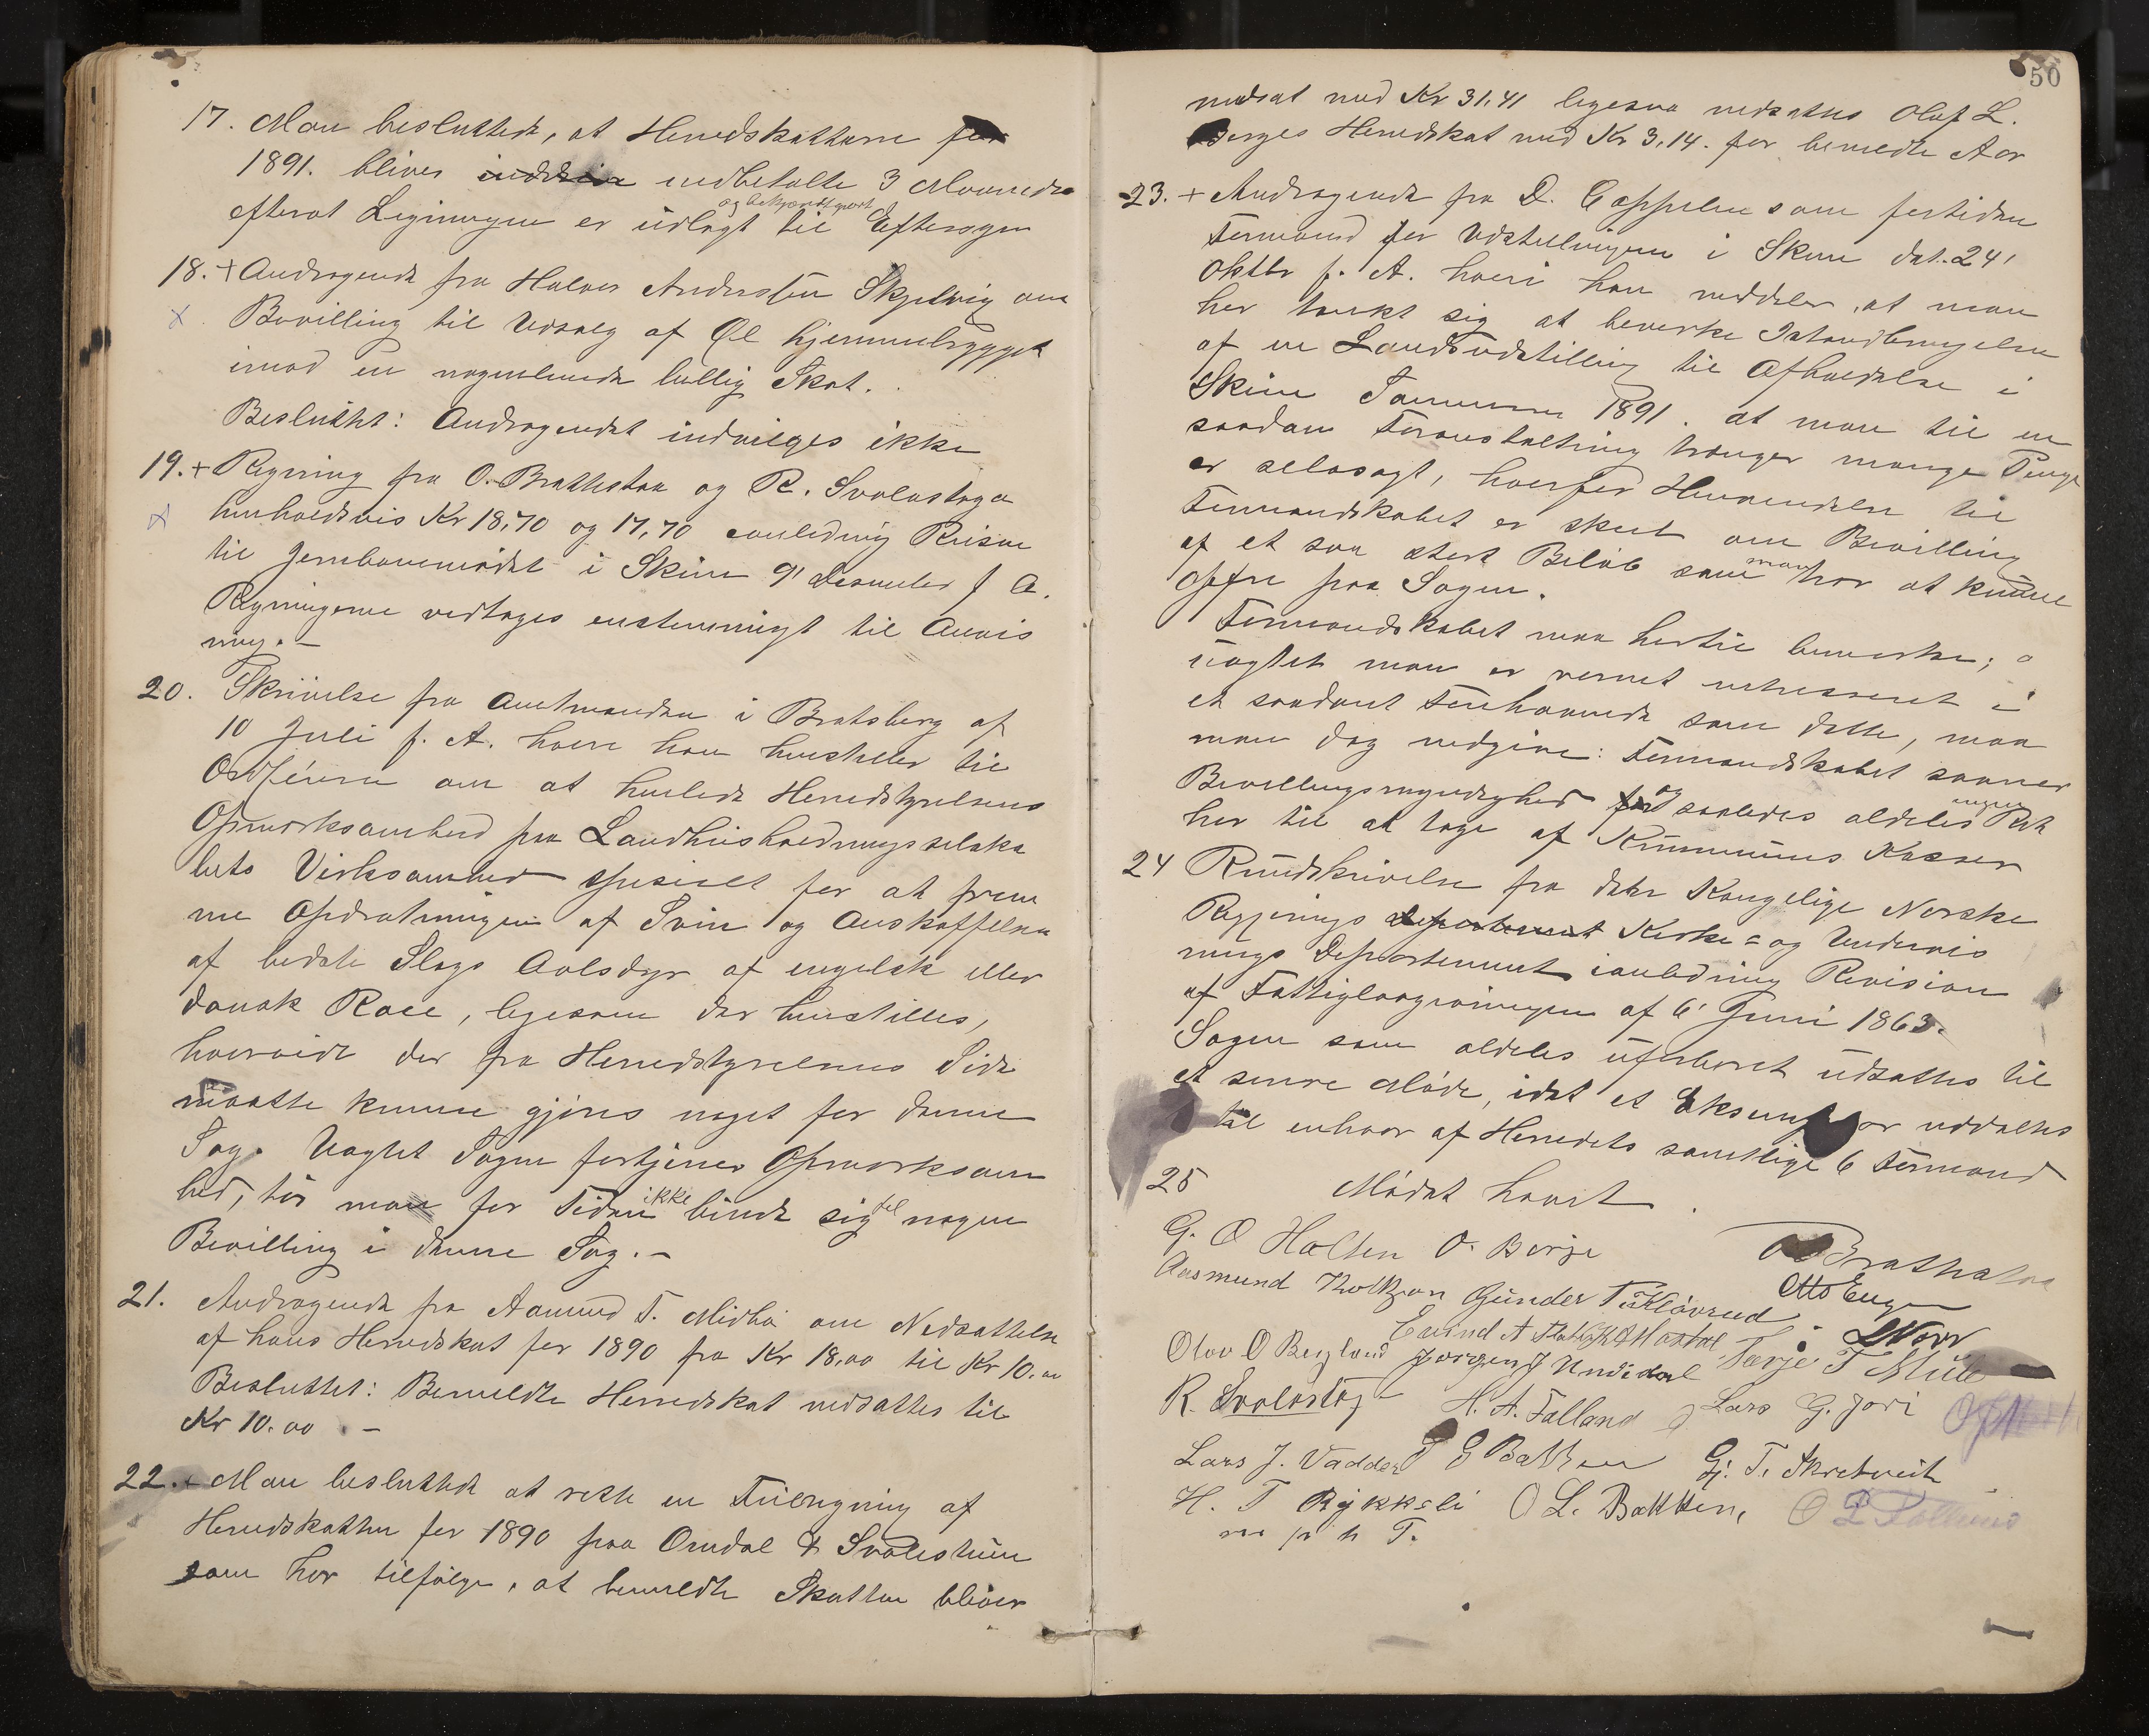 17. Man besluttede, at Herredskatterne for
1891. bliver indbetalte 3 Maaneder
og bekjendtgjort
efterat Ligningen er udlagt til Eftersyn
18. + Andragende fra Halvor Anderssen Skjelvig om
x Bevilling til Udsalg af Øl hjemmebrygget
imod en nogenlunde billig Skat.
Besluttet: Andragendet indvilges ikke
19. + Regning fra O. Brathstaa og R. Svalastoga
x henholdsvis Kr 18,70 og 17,70 anledning Reisen
til Jernbanemödet i Skien 9' Desember f A.
Regningerne vedtages enstemmigt til Anvis
ning. –
20. Skrivelse fra Amtmanden i Bratsberg af
10 Juli f. A. hvori han henstiller til
Ordføreren om at henlede Herredstyrelsens
Opmærksomhed paa Landhusholdningsselska
bets Virksomhed spesielt for at frem
me Opdrætningen af Svin og Anskaffelsen
af bedste Slags Avlsdyr af engelsk eller
dansk Race, ligesom der henstilles,
hvorvidt der fra Herredstyrelsens Side
maatte kunne gjöres noget for denne
Sag. Uagtet Sagen fortjener Opmærksom
hed, tör man for Tiden ikke binde sig til nogen
Bevilling i denne Sag. –
21. Andragende fra Aamund T. Midbö om Nedsættelse
af hans Herredskat for 1890 fra Kr 18,00 til Kr 10.00
Besluttet: Bemeldte Herredskat nedsættes til
Kr 10.00 –
22. + Man besluttede at rette en Feilregning af
Herredskatten for 1890 paa Omdal &
som har tilfölge, at bemeldte Skatten bliver
50
nedsat med Kr 31,41 ligesaa nedsættes Olaf L.
Berges Herredskat med Kr 3,14. for bemeldte Aar
23. + Andragende fra D. Cappelen som fortiden
Formand for Udstillingen i Skien dat. 24'
Oktbr f. A. hvori han meddeler, at man
har tænkt sig at bevirke Istandbringelsen
af en Landsudstilling til Afholdelse i
Skien Sommeren 1891. at man til en
saadan Foranstaltning trænger mange Penge
er selvsagt, hvorfor Henvendelse til
Formandskabet er skeet om Bevilling
af et saa stort Beløb som man har at kunne
offre paa Sagen.
Formandskabet maa hertil bemerke;
uagtet man er varmt interesseret i
et saadant Foretagende som dette, maa
man dog medgive: Formandskabet savner
Bevillingsmyndighed og saaledes aldeles ingen Ret
her til at tage af Kommunens Kasser
24 Rundskrivelse fra det Kongelige Norske
Regjerings Departement Kirke= og Undervis
nings Departement ianledning Revision
af Fattiglovgivningen af 6' Juni 1863.
Sagen som aldeles uforberedt udsattes til
et senere Møde, idet et Eksemplar uddeltes
til enhver af Herredets samtlige 6 Formænd
25 Mödet hævet
G. O Holten O. Berge O Brathstaa
Aasmund Gunder T Klövrud Otto Eugen
Eivind A
Olav O Bergland Jørgen J Undidal Tarje T Mule
R. Svalastog H. A. Falland Lars G. Jori
Lars J. Vadder E Bakken Gj. T. Skretveit
H. T Rykkeli O L. Bakken,
m p h T.